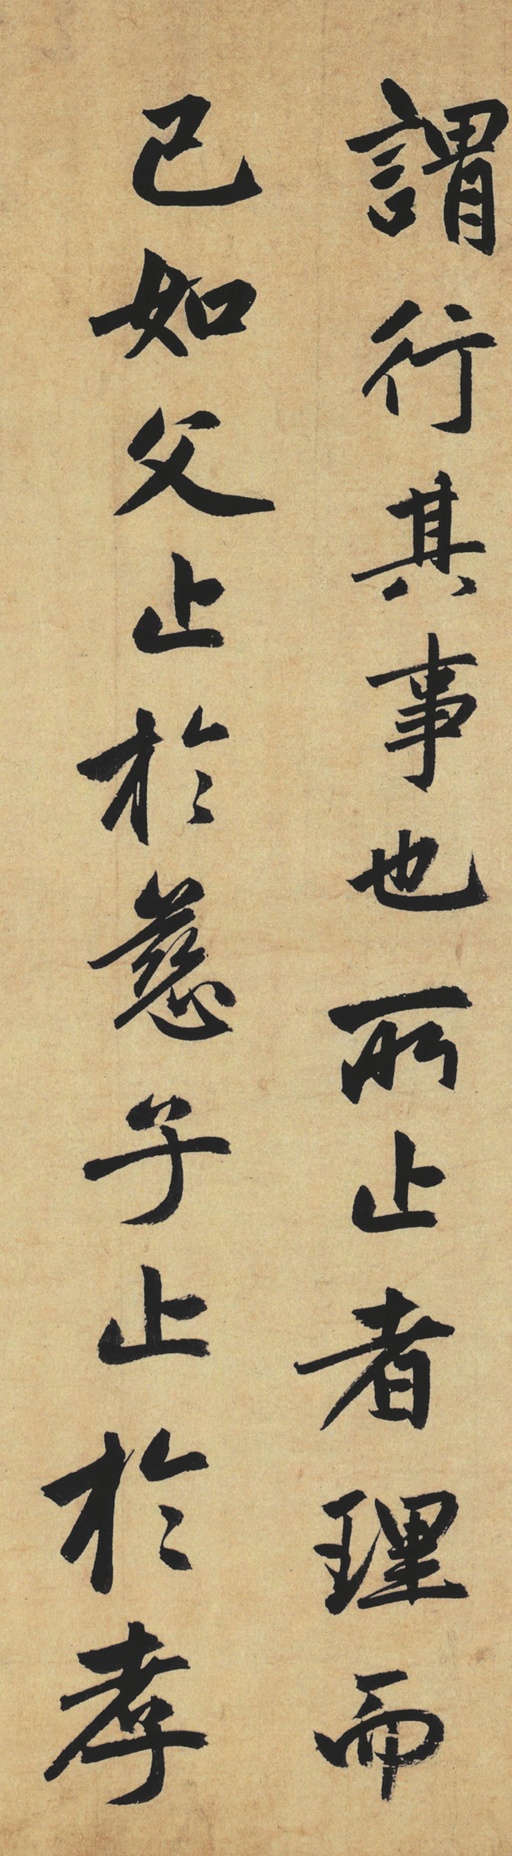 謂行其事也所止者理而
已如父止於慈子止於孝